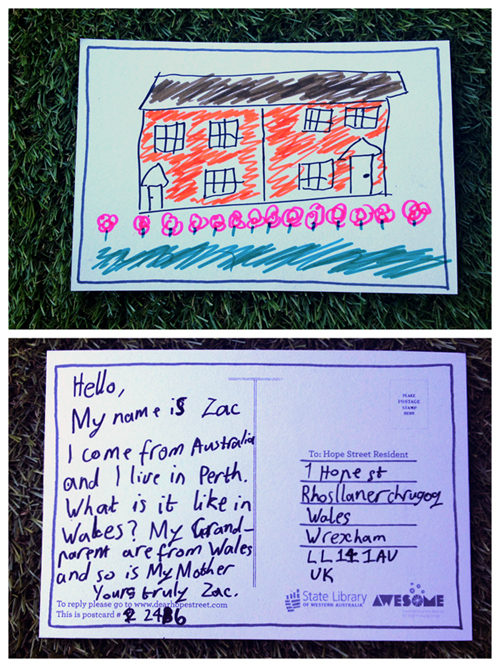 Hello,
My name is Zac
I come from Australia
and I live in Perth.
What is it like in
Wales? My Grand-
parent are from Wales
and so is My Mother
Yours truly Zac.
To reply please go to www.dearhopestreet.com
This is postcard # 2486
PLACE
POSTAGE
STAMP
HERE
To: Hope Street Resident
1 Hope st
Rhosllanerchrugog
Wales
Wrexham
LL14 1AU
UK
State Library
OF WESTERN AUSTRALIA
AWESOME